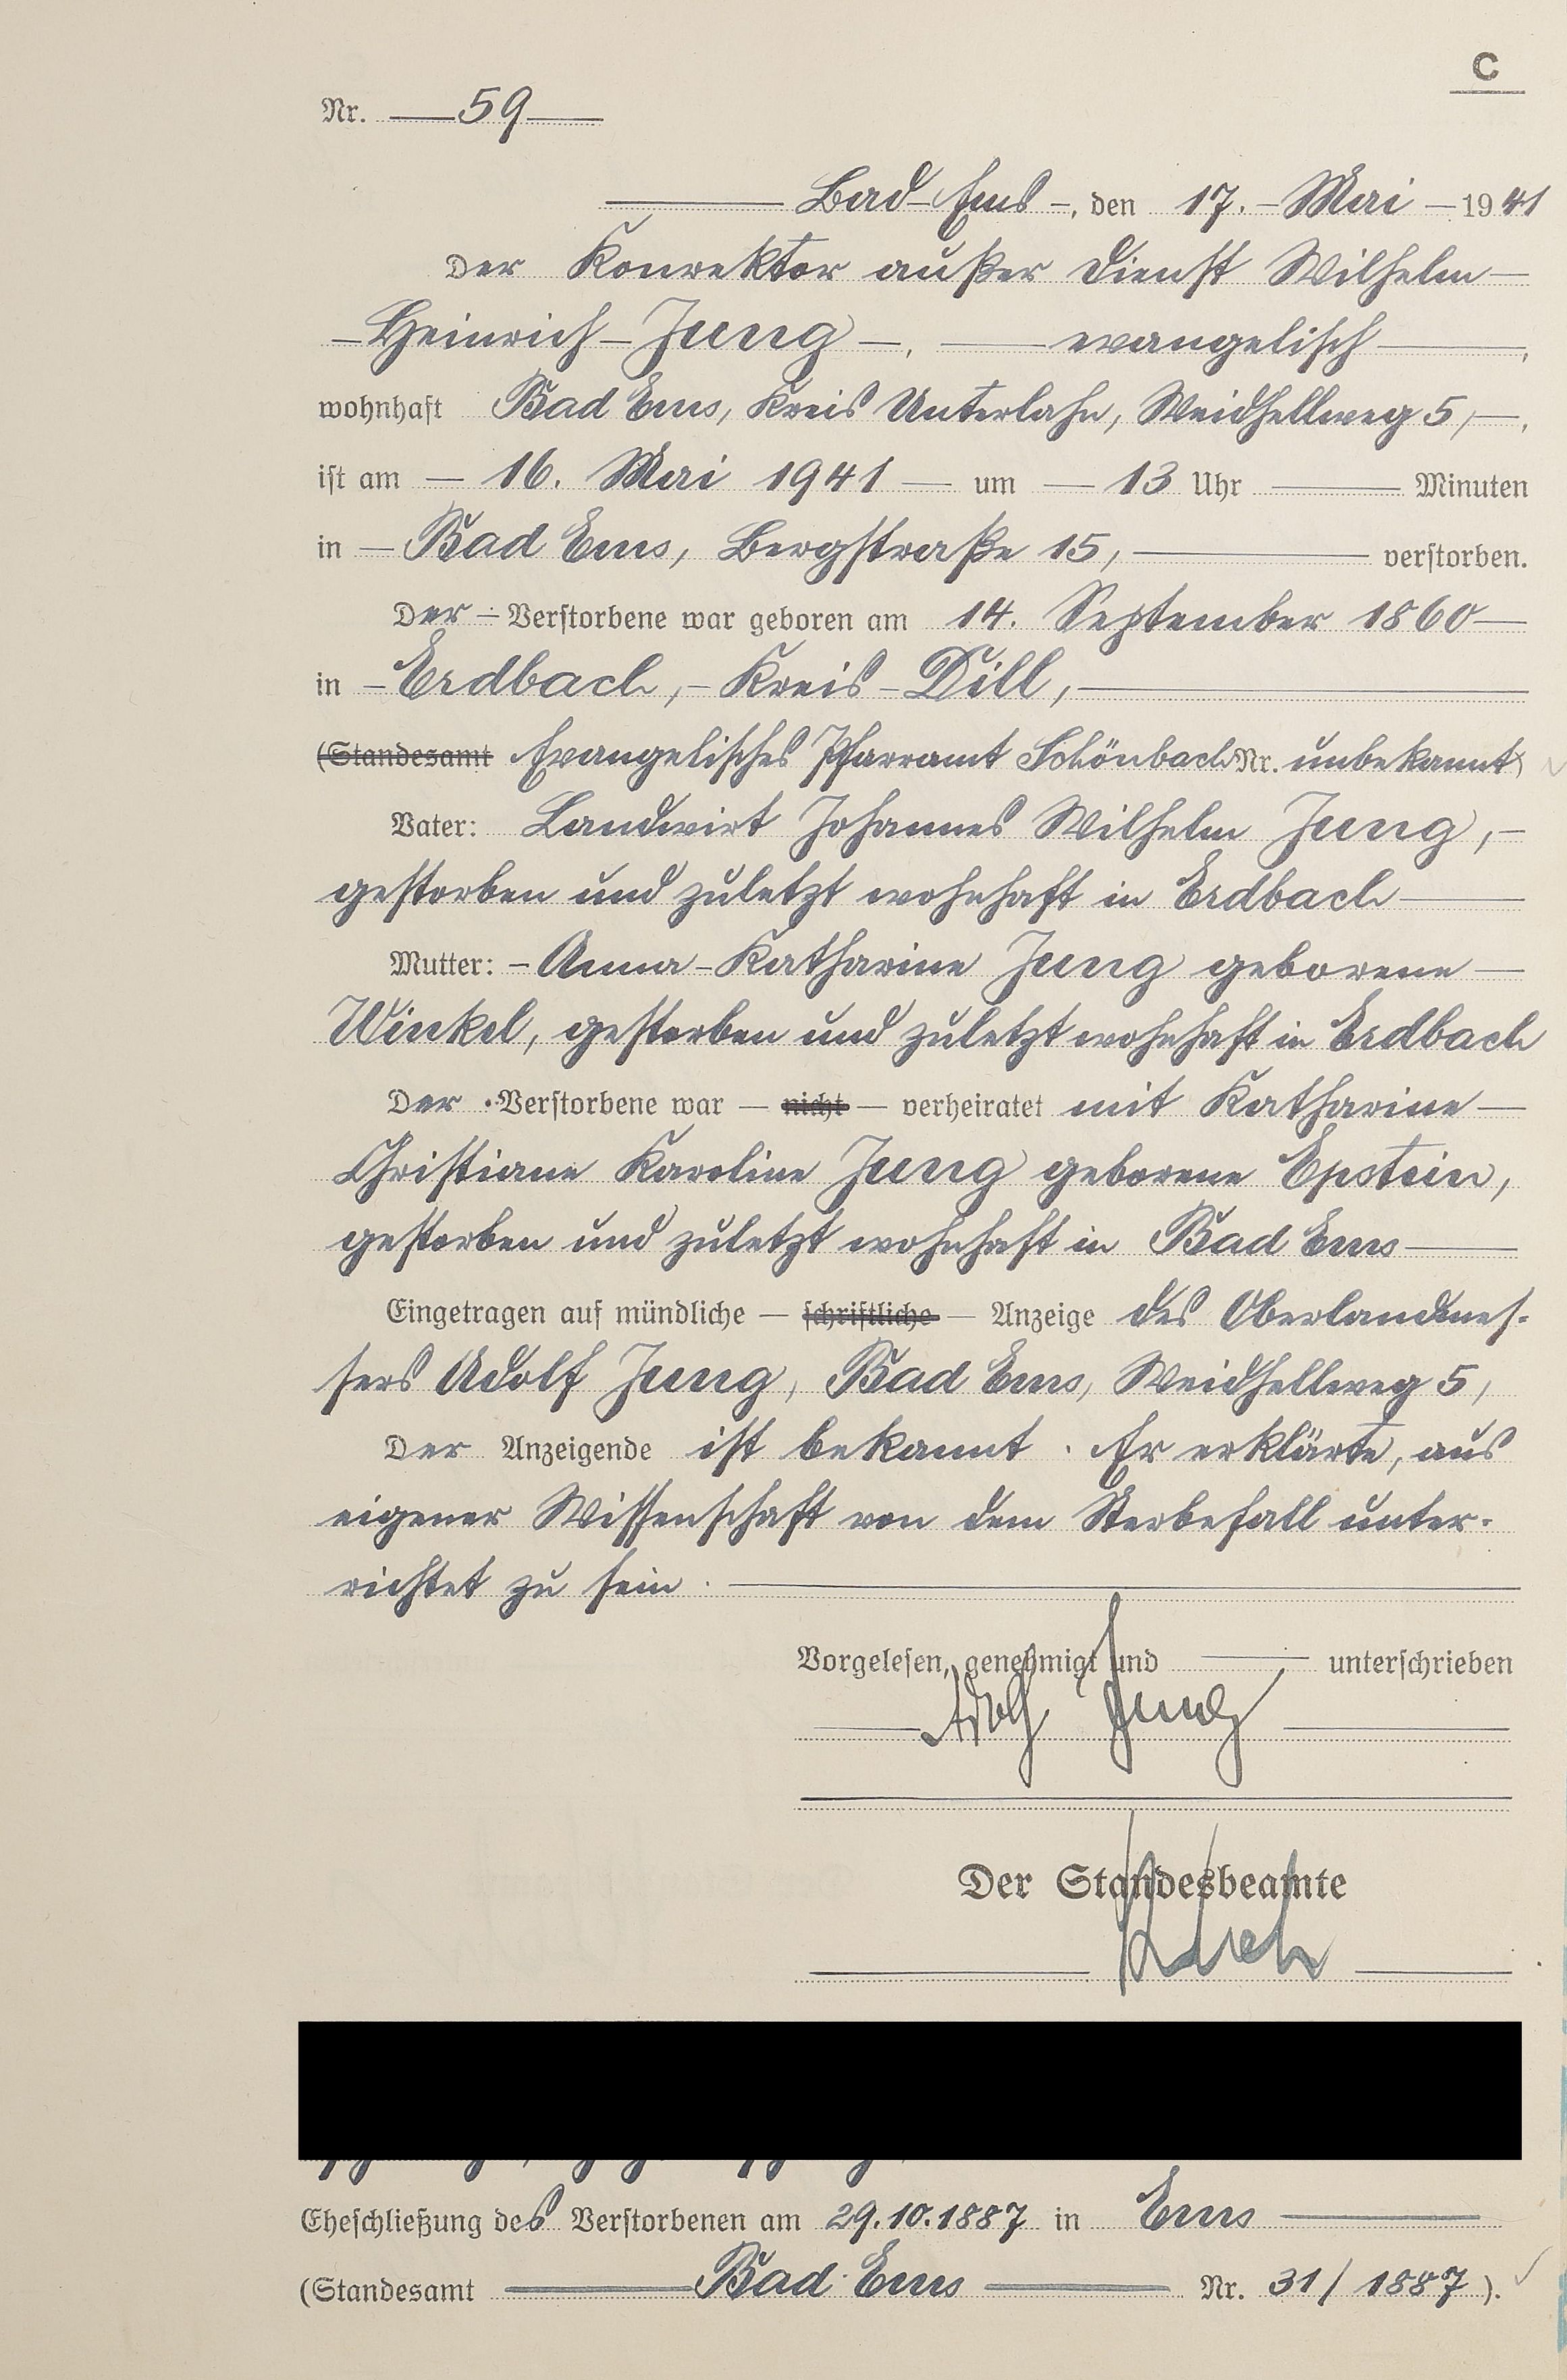 C
Nr. 59
Bad Ems, den 17. Mai 1941
Der Konrektor außer Dienst Wilhelm
Heinrich Jung, evangelisch,
wohnhaft Bad Ems, Kreis Unterlahn, Weidhellweg 5,
ist am 16. Mai 1941 um 13 Uhr Minuten
in Bad Ems, Bergstraße 15, verstorben.
Der Verstorbene war geboren am 14. September 1860
in Erdbach, Kreis Dill,
(Standesamt Evangelisches Pfarramt Schönbach Nr. unbekannt)
Vater: Landwirt Johannes Wilhelm Jung,
gestorben und zuletzt wohnhaft in Erdbach
Mutter: Anna Katharine Jung geborene
Winkel, gestorben und zuletzt wohnhaft in Erdbach
Der Verstorbene war — nicht — verheiratet mit Katharine
Christiane Karoline Jung geborene Epstein,
gestorben und zuletzt wohnhaft in Bad Ems
Eingetragen auf mündliche — schriftliche — Anzeige des Oberlandmes-
sers Adolf Jung, Bad Ems, Weidhellweg 5,
Der Anzeigende ist bekannt. Er erklärte, aus
eigener Wissenschaft von dem Sterbefall unter-
richtet zu sein.
Vorgelesen, genehmigt und unterschrieben
Adolf Jung
Der Standesbeamte
Eheschließung des Verstorbenen am 29.10.1887 in Ems
(Standesamt Bad Ems Nr. 31/1887).